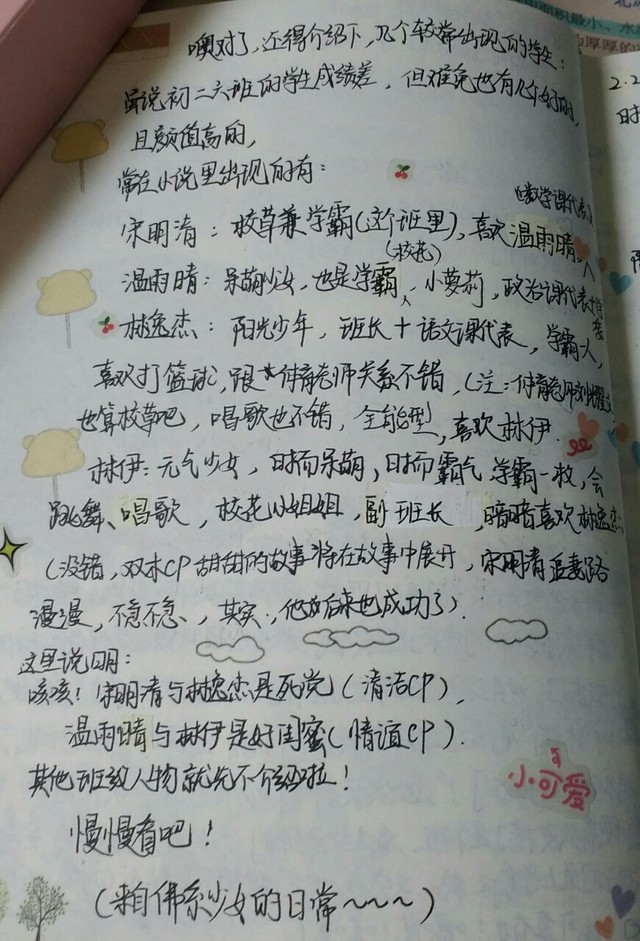 噢对了，还得介绍下，几个较常出现的学生：
虽说初二六班的学生成绩差，但难免也有几个好的，
且颜值高的，
常在小说里出现的有：
(数学课代表)
宋明清：校草兼学霸(这个班里)，喜欢温雨晴。
(校花)
温雨晴：呆萌少女，也是学霸人，小萝莉，政治课代表
林逸杰：阳光少年，班长+语文课代表，学霸一人，
喜欢打篮球，跟体育老师关系不错，(注：体育老师
也算校草吧，唱歌也不错，全能型，喜欢林伊.
林伊：元气少女，时而呆萌，时而霸气，学霸一枚，会
跳舞、唱歌，校花小姐姐，副班长，暗暗喜欢林逸杰
(没错，双木CP甜甜的故事将在故事中展开，宋明清追妻路
漫漫，不急不急，其实，他后来也成功了).
这里说明：
咳咳！宋明清与林逸杰是死党(清洁CP)，
温雨晴与林伊是好闺蜜(情谊CP).
其他班级人物就先不介绍啦！
小可爱
慢慢看吧！
(来自佛系少女的日常~~~)
2.2